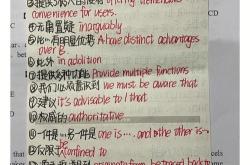 convenience for users.
①无庸置疑 inarguably
②比…有明显优势 A have distinct advantages
over B.
③此外 in addition
④提供多种功能 Provide multiple functions
⑤我们必须意识到 we must be aware that
⑥建议 it's advisable to / that
⑦权威的 authoritative
⑧一件是…另一件是 one is … and the other is
⑨仅限于 confined to